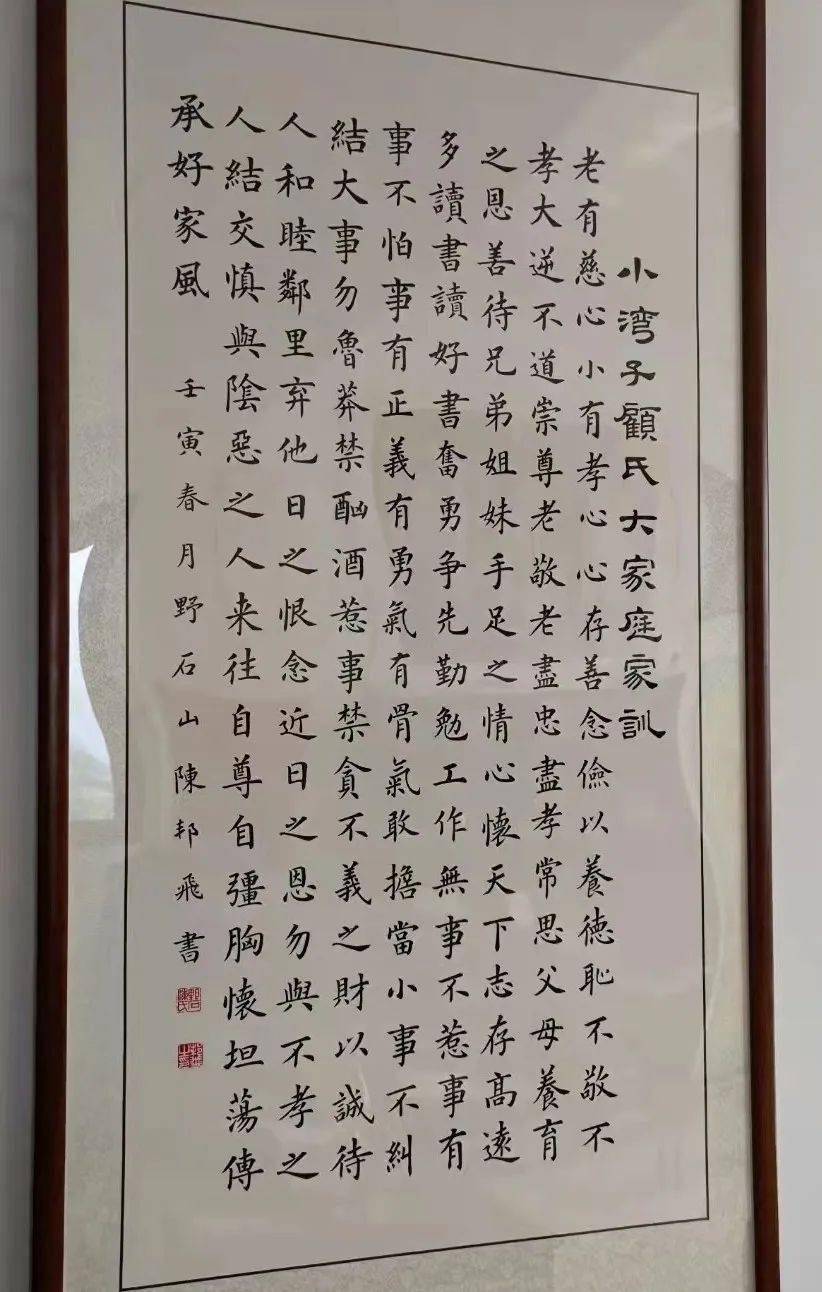 小湾子顧氏大家庭家訓
老有慈心小有孝心心存善念儉以養德恥不敬不
孝大逆不道崇尊老敬老盡忠盡孝常思父母養育
之恩善待兄弟姐妹手足之情心懷天下志存高遠
多讀書讀好書奮勇争先勤勉工作無事不惹事有
事不怕事有正義有勇氣有骨氣敢擔當小事不糾
結大事勿魯莽禁酗酒惹事禁貪不義之財以誠待
人和睦鄰里弃他日之恨念近日之恩勿與不孝之
人結交慎與陰惡之人来往自尊自彊胸懷坦蕩傳
承好家風
壬寅春月野石山陳邦飛書